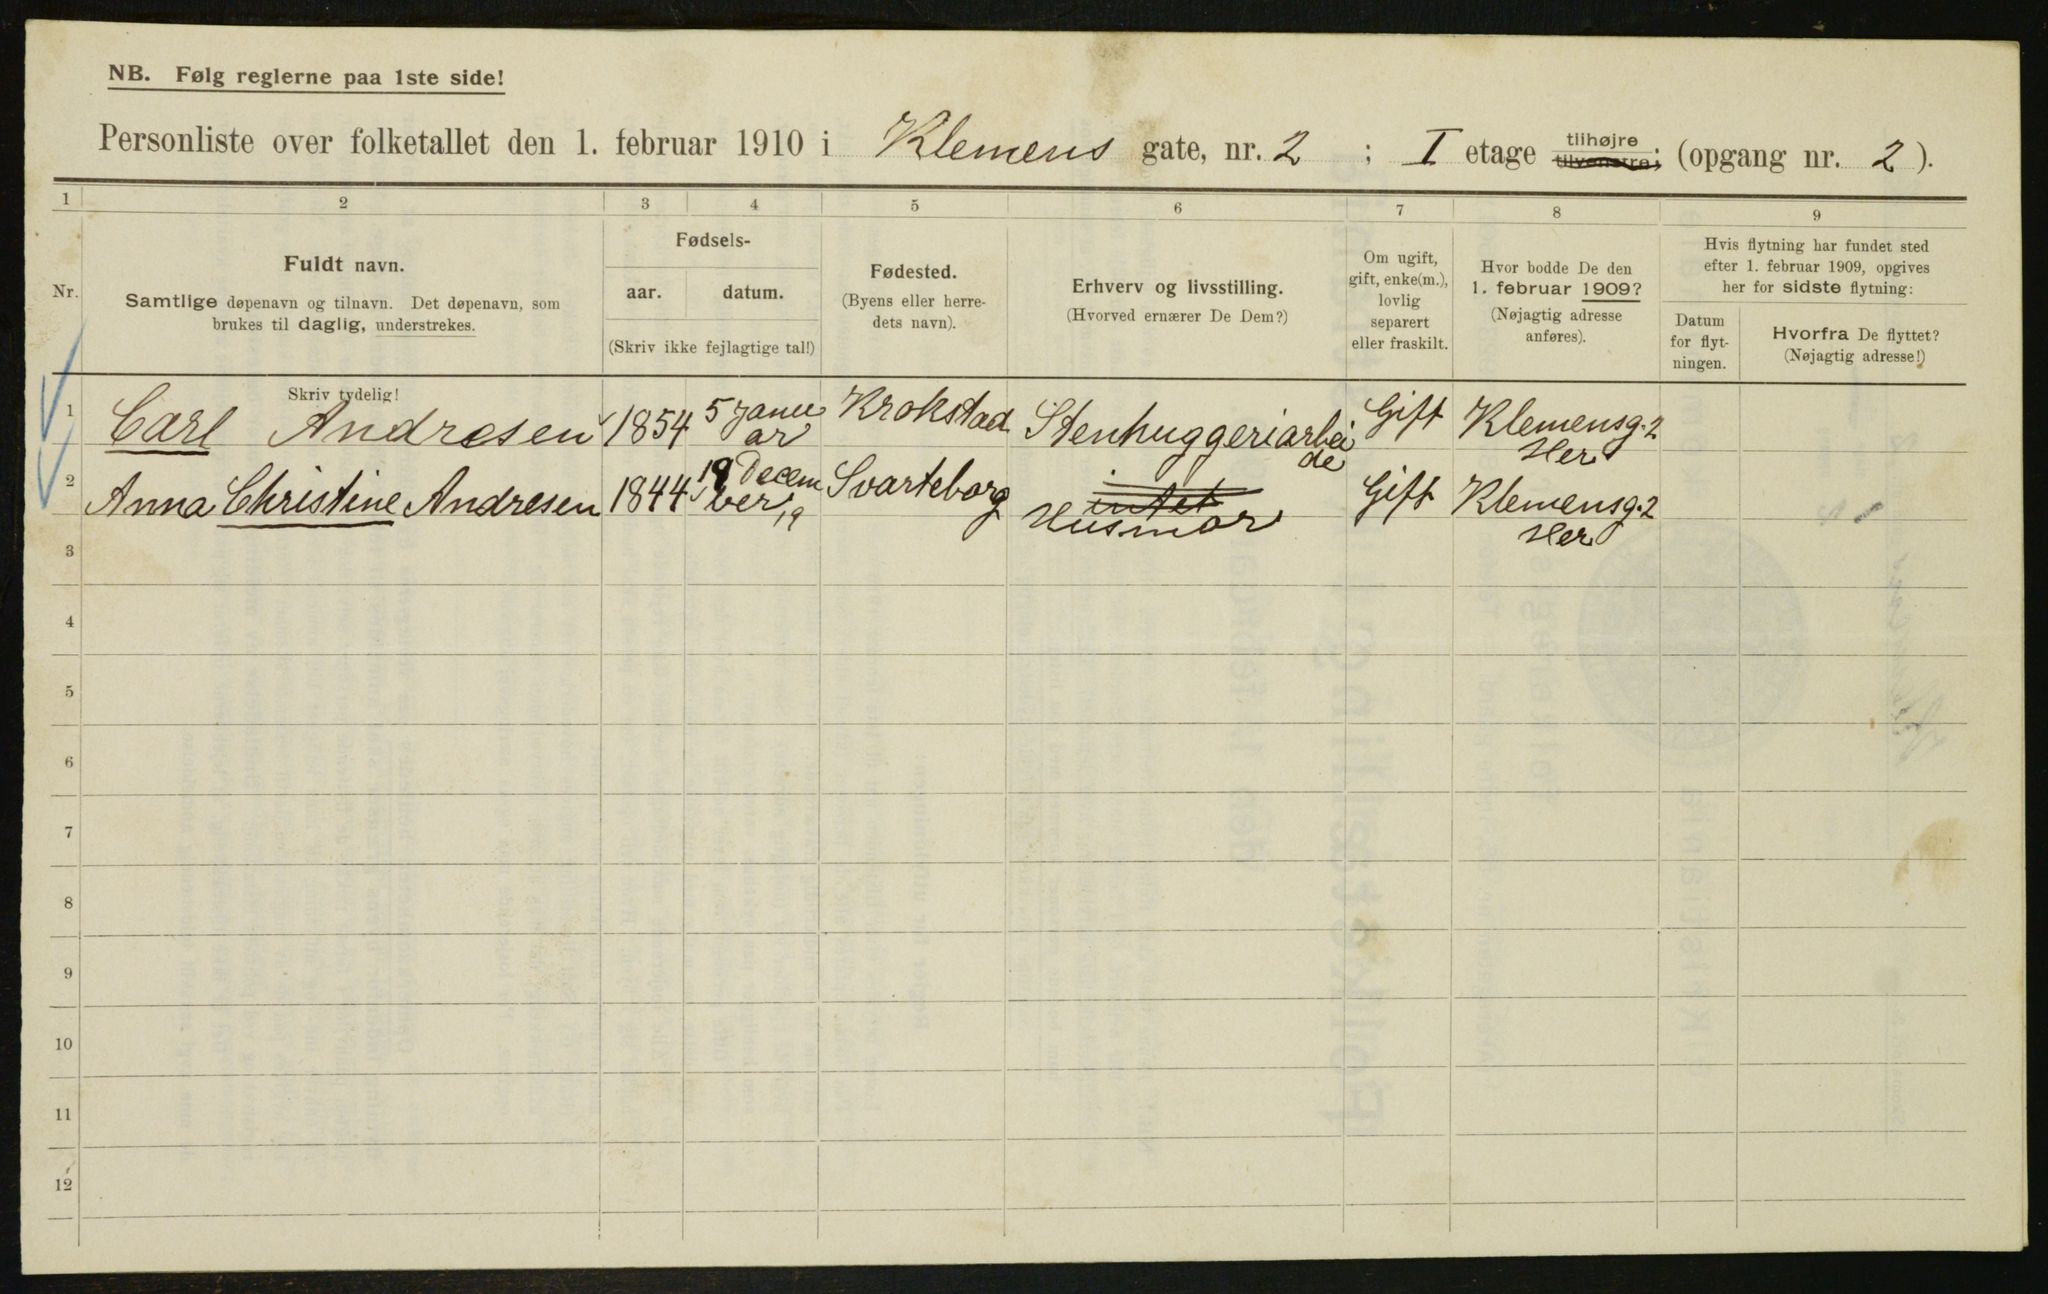 NB. Følg reglerne paa 1ste side!
Personliste over folketallet den 1. februar 1910 i Klemens gate, nr. 2 ; I etage tilhøjre tilvenstre; (opgang nr. 2 ).
1 2 3 4 5 6 7 8 9
Nr.
Fuldt navn.
Samtlige døpenavn og tilnavn. Det døpenavn, som
brukes til daglig, understrekes.
Fødsels-
aar. datum.
(Skriv ikke fejlagtige tal!)
Fødested.
(Byens eller herre-
dets navn).
Erhverv og livsstilling.
(Hvorved ernærer De Dem?)
Om ugift,
gift, enke(m.),
lovlig
separert
eller fraskilt.
Hvor bodde De den
1. februar 1909?
(Nøjagtig adresse
anføres).
Hvis flytning har fundet sted
efter 1. februar 1909, opgives
her for sidste flytning:
Datum
for flyt-
ningen.
Hvorfra De flyttet?
(Nøjagtig adresse!)
Skriv tydelig!
1 Carl Andresen 1854 5 Janu
ar Krokstad Stenhuggeriarbei
de Gift Klemensg. 2
Her
2 Anna Christine Andresen 1844 19 Decem
ber 19 Svarteborg intet
Husmor Gift Klemensg. 2
Her
3
4
5
6
7
8
9
10
11
12